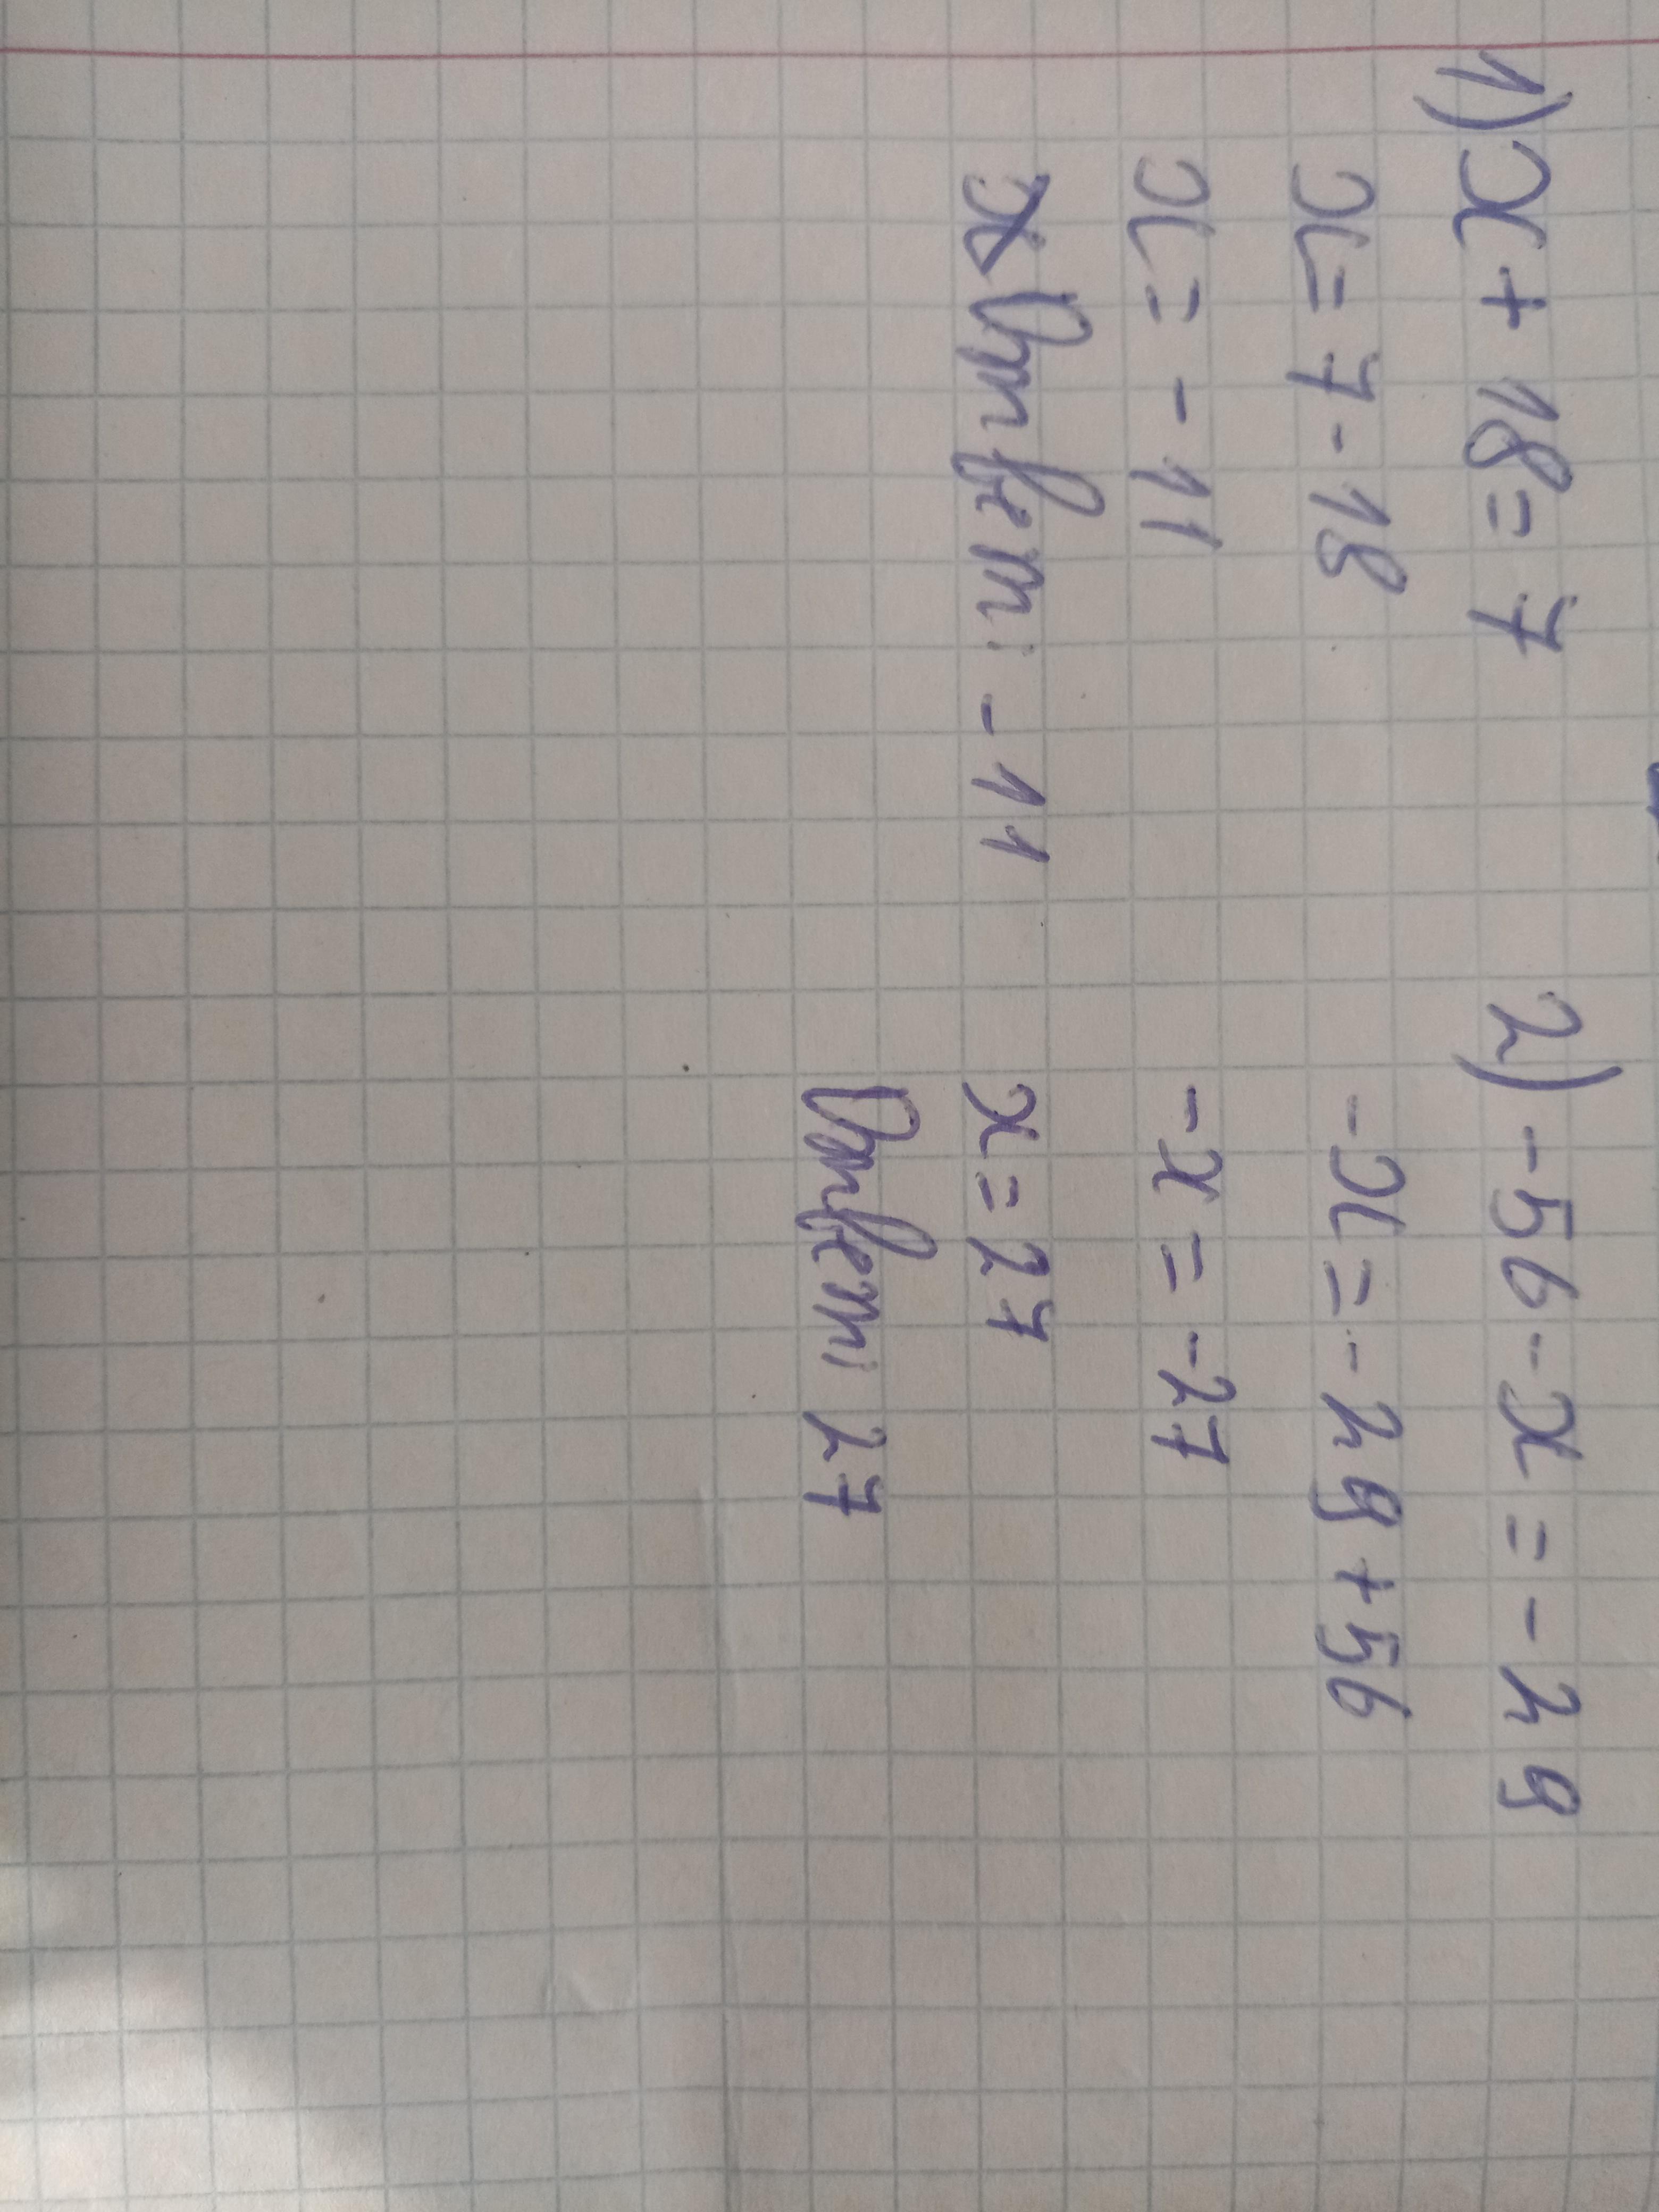 1) x + 18 = 7
x = 7 - 18
x = - 11
Ответ: - 11
2) - 56 - x = - 29
- x = - 29 + 56
- x = - 27
x = 27
Ответ: 27